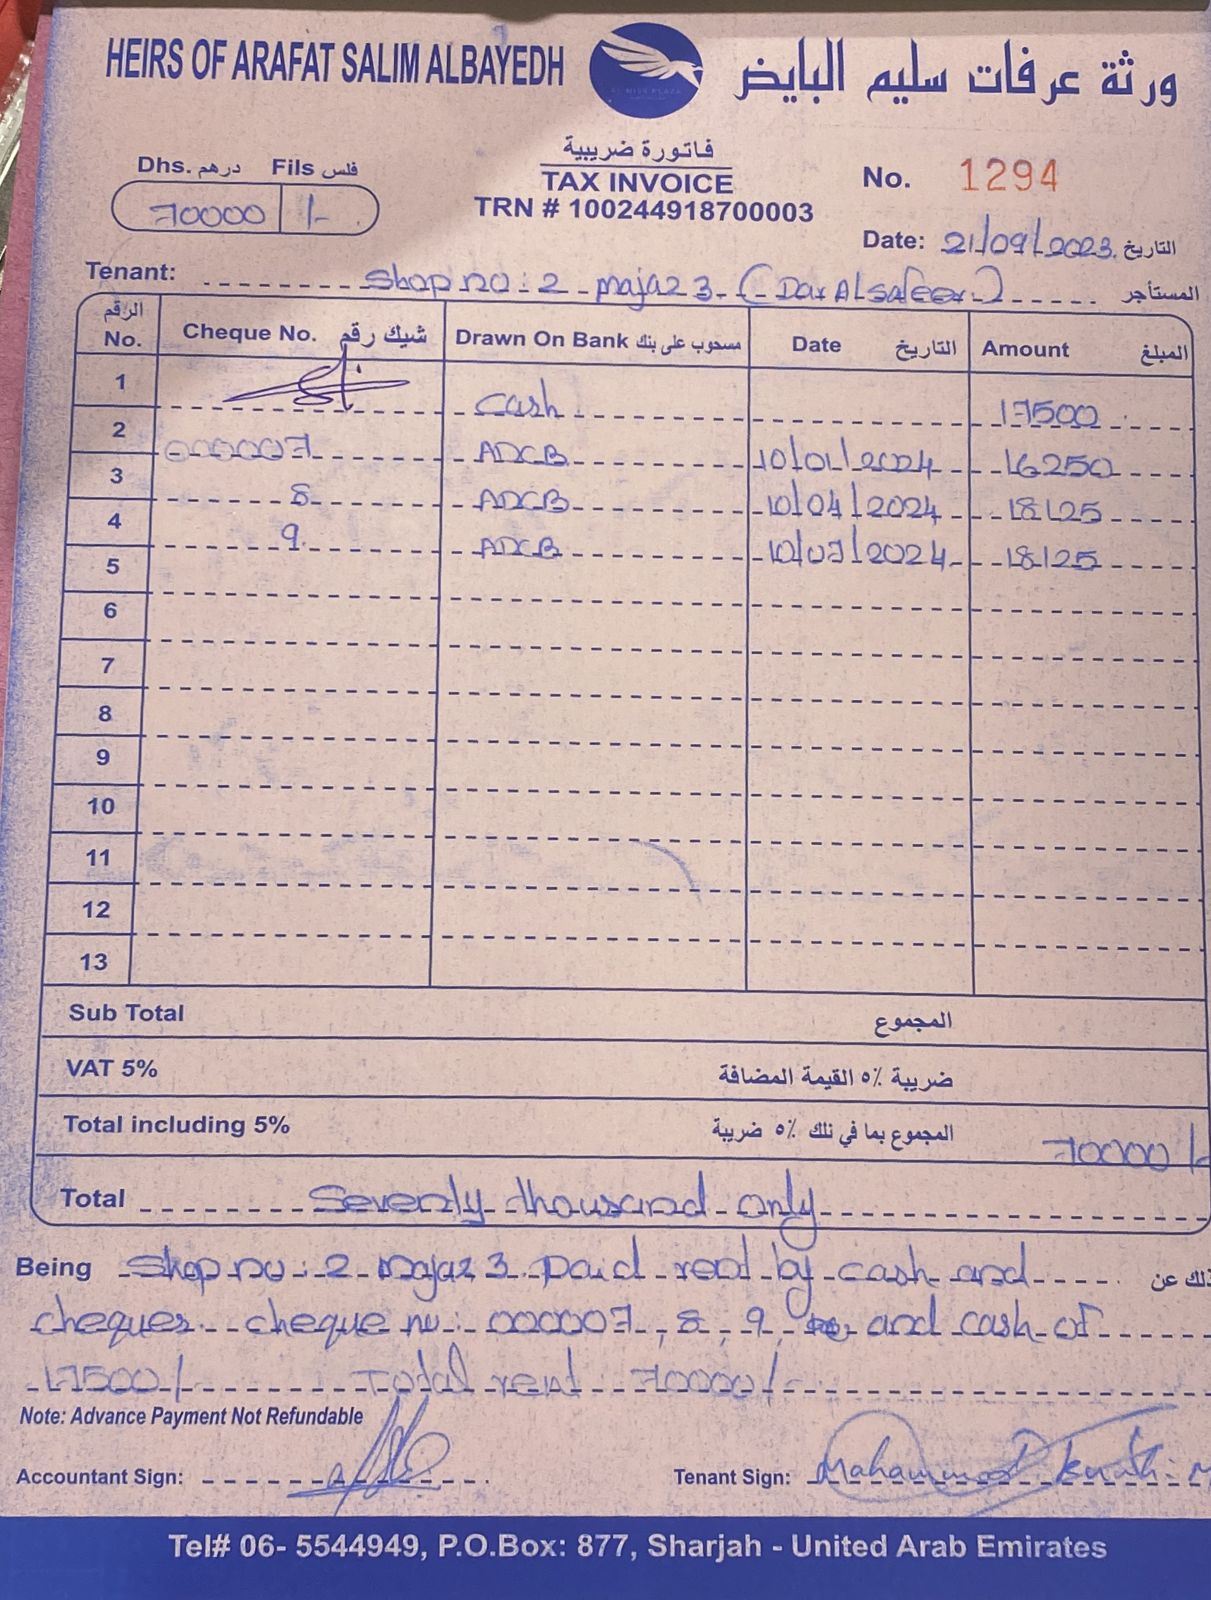 HEIRS OF ARAFAT SALIM ALBAYEDH ورثة عرفات سليم البايض
فاتورة ضريبية
TAX INVOICE
TRN # 100244918700003
Dhs. درهم Fils فلس
70000 /-
No. 1294
Date: 21/09/2023 التاريخ
Tenant: Shop no: 2 majaz 3 (Dar Al safeer) المستأجر
الرقم No. Cheque No. شيك رقم Drawn On Bank مسحوب على بنك Date التاريخ Amount المبلغ
1 Cash 17500
2 000007 ADCB 10/01/2024 16250
3 8 ADCB 10/04/2024 18125
4 9 ADCB 10/07/2024 18125
5
6
7
8
9
10
11
12
13
Sub Total المجموع
VAT 5% ضريبة ٥٪ القيمة المضافة
Total including 5% المجموع بما في ذلك ٥٪ ضريبة 70000/-
Total Seventy thousand only
Being Shop no: 2 majaz 3 paid rent by cash and ذلك عن
cheques. cheque no: 000007, 8, 9, and cash of
17500/- Total rent 70000/-
Note: Advance Payment Not Refundable
Accountant Sign: Tenant Sign: Mahammad
Tel# 06- 5544949, P.O.Box: 877, Sharjah - United Arab Emirates